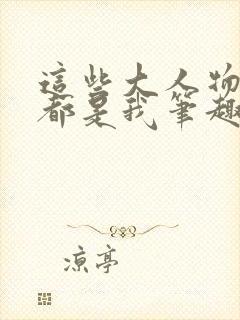 這些大人物
都是我筆趣
涼亭